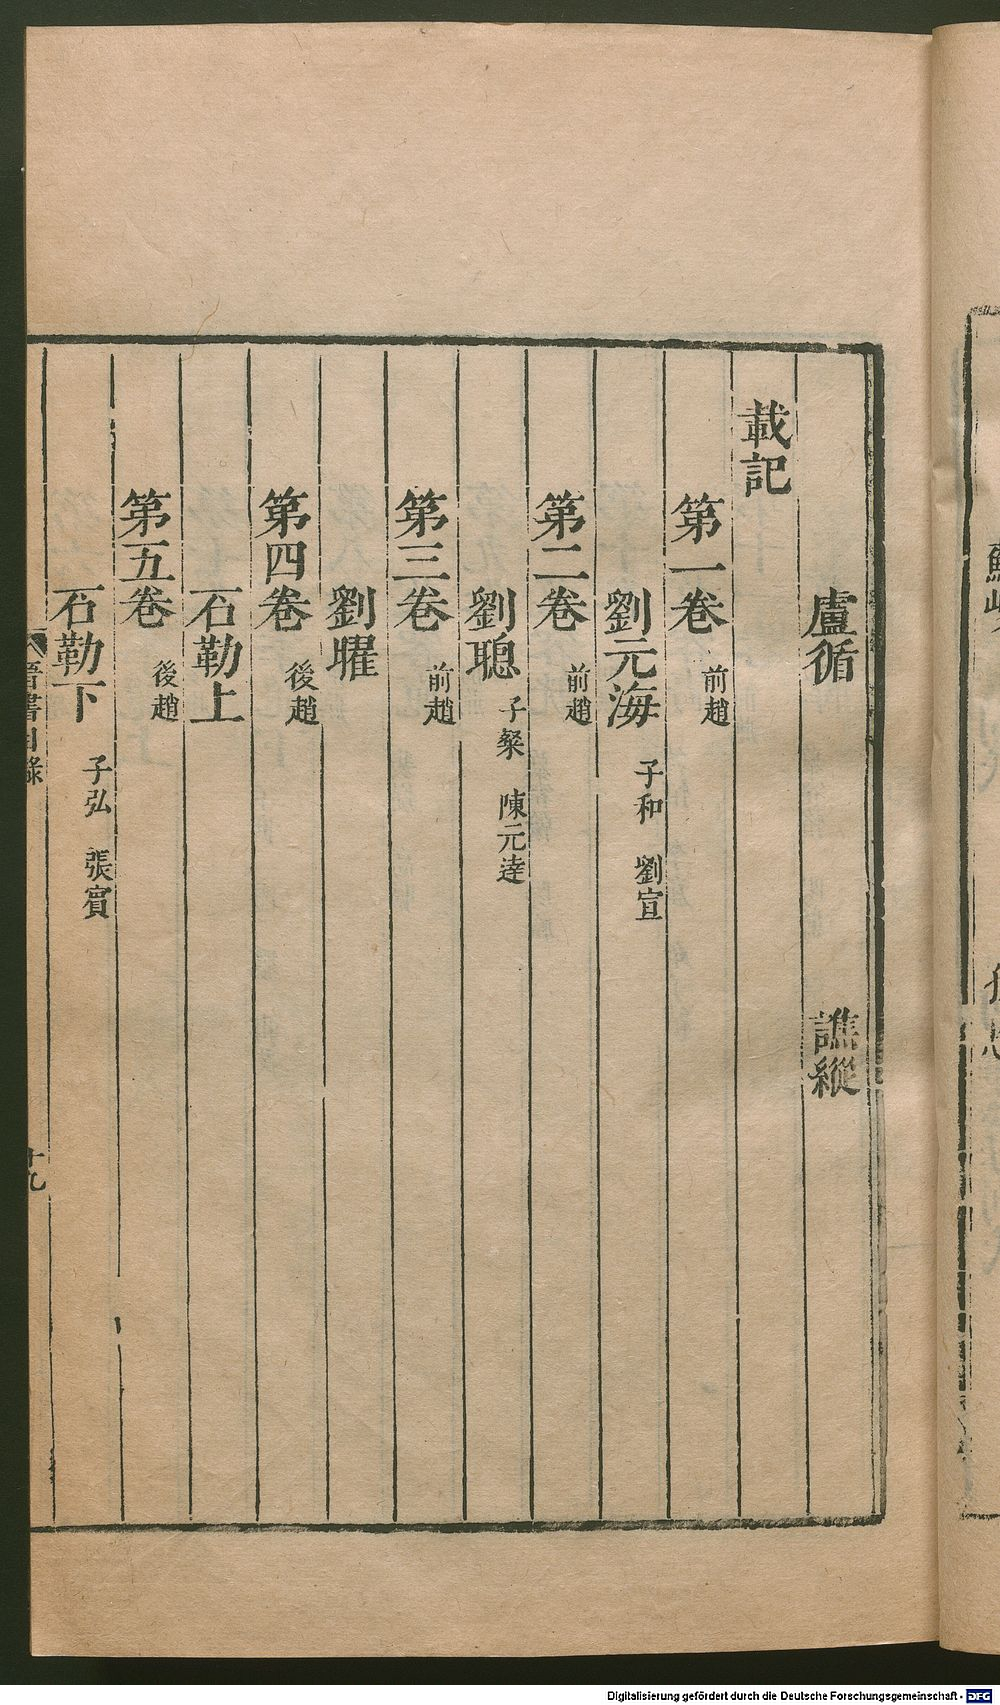 盧循 譙縱
載記
第一卷 前趙
劉元海 子和 劉宣
第二卷 前趙
劉聰 子粲 陳元達
第三卷 前趙
劉曜
第四卷 後趙
石勒上
第五卷 後趙
石勒下 子弘 張賓
晉書目錄 十九
Digitalisierung gefördert durch die Deutsche Forschungsgemeinschaft - DFG